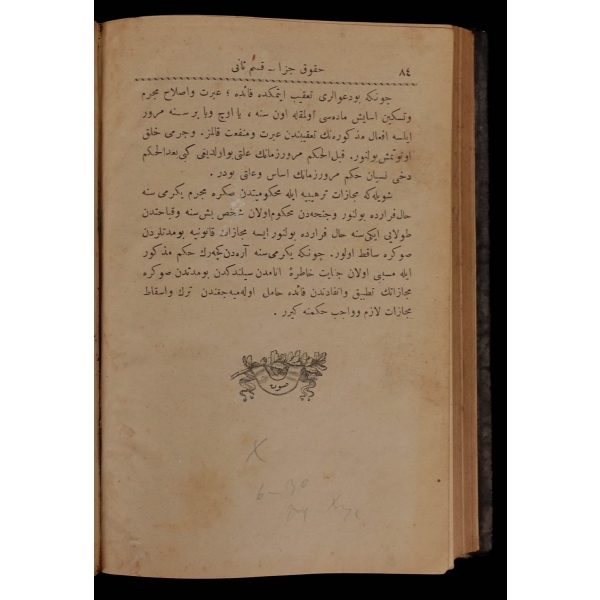 ٨٤
حقوق جزا ـ قسم ثانی
چونكه بودعوالری تعقیب ایتمكده فائده ؛ عبرت واصلاح مجرم
وتسكین آسایش ماده‌سی اولمقله اون سنه ، یا اوچ ویا بر سنه مرور
ایلسه افعال مذكوره‌نك تعقیبندن عبرت ومنفعت قالمز. وجرمی خلق
اونوتمش بولنور. قبل الحكم مرورزمانك علتی بواولدیغی كبی بعدالحكم
دخی نسیان حكم مرورزمانك اساس وعلتی بودر .
شویله‌كه مجازات ترهیبیه ایله محكومیتدن صكره مجرم یكرمی سنه
حال فرارده بولنور وجنحه‌دن محكوم اولان شخص بش سنه وقباحتدن
طولایی ایكی سنه حال فرارده بولنور ایسه مجازات قانونیه بومدتلردن
صوكره ساقط اولور. چونكه یكرمی سنه آره‌دن كچه‌رك حكم مذكور
ایله مسببی اولان جنایت خاطرهٔ انامدن سیلندكدن بومدتدن صوكره
مجازاتك تطبیق وانفاذندن فائده حاصل اوله‌میه‌جغندن ترك واسقاط
مجازات لازم وواجب حكمنه كیرر .
صوڭ
X